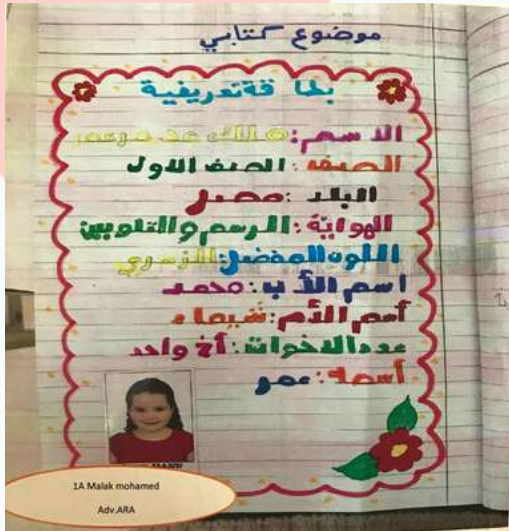 موضوع كتابي
بطاقة تعريفية
الاسم: ملك محمد
الصف: الصف الاول
البلد: مصر
الهواية: الرسم والتلوين
اللون المفضل:
اسم الأب: محمد
أسم الأم: شيماء
عدد الاخوات: أخ واحد
أسمة: عمر
1A Malak mohamed
Adv.ARA